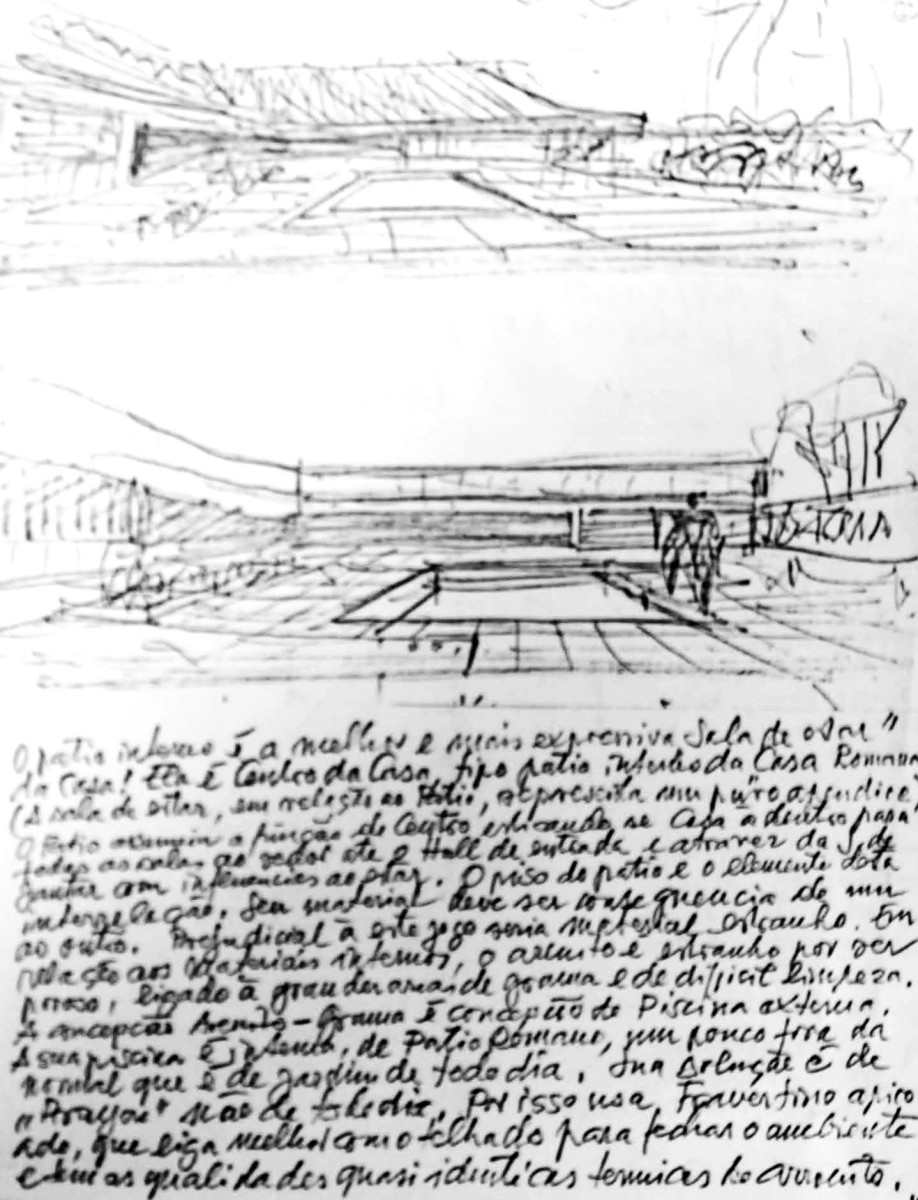 O patio interno é a melhor e mais expressiva Sala de estar"
da Casa! Ela é Centro da Casa, tipo patio interno da Casa Romana
(A sala de estar, em relação ao Patio, representa um puro apendice,
O Patio assumiu a função de Centro esticando se Casa a dentro para
todas as salas ao redor até o Hall de entrada e atravez da S. de
com influencias ao estar. O piso do patio é o elemento desta
interrelação. Seu material deve ser consequencia de um
ao outro. Prejudicial à este jogo seria material estranho. Em
relação aos Materiais internos, o arenito é estranho por ser
poroso, ligado à grandes areas de grama e de dificil limpeza.
A concepção Arenito-Grama é concepção de Piscina externa.
A sua piscina É interna, de Patio Romano, um pouco fora da
normal que é de jardim de todo dia. Sua solução é de
não de todo dia. Por isso usa, Travertino apico
ado, que liga melhor com o telhado para fechar o ambiente
e tem as qualidades quasi identicas termicas do arenito.